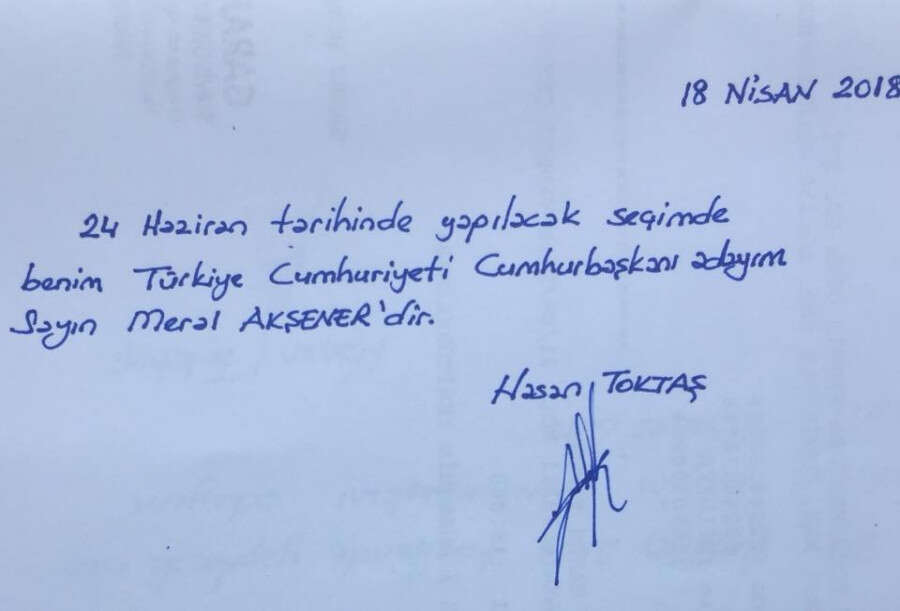 18 NİSAN 2018
24 Haziran tarihinde yapılacak seçimde
benim Türkiye Cumhuriyeti Cumhurbaşkanı adayım
Sayın Meral AKŞENER'dir.
Hasan TOKTAŞ